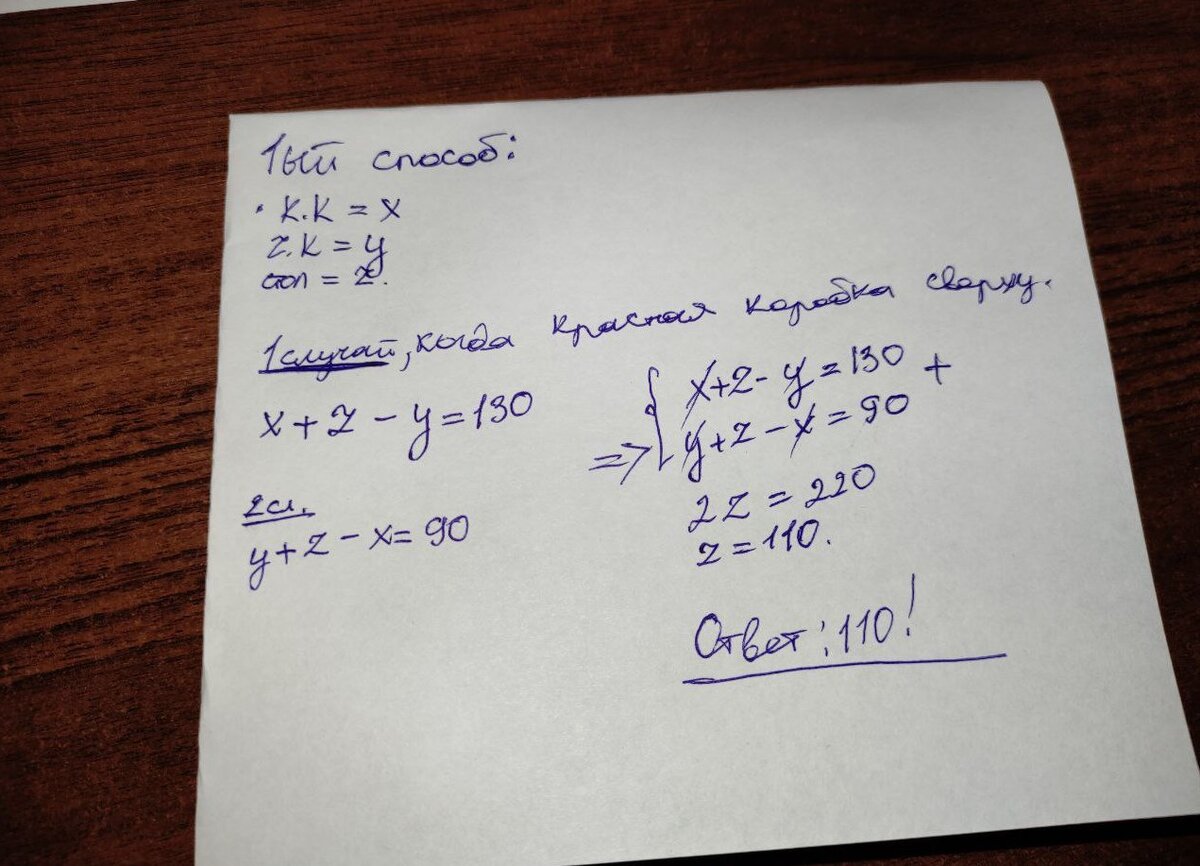 1ый способ:
· К.К = x
Z.К = y
стол = z.
1 случай, когда красная коробка сверху.
x + z - y = 130
2 сл.
y + z - x = 90
=> { x + z - y = 130 +
y + z - x = 90
2z = 220
z = 110.
Ответ: 110!